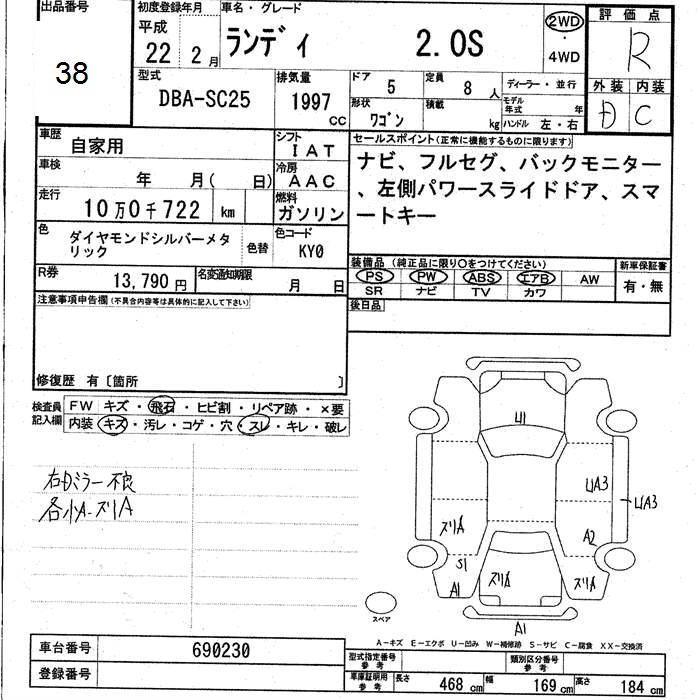 出品番号
38
初度登録年月
平成
22 2 月
車名・グレード
ランディ 2.0S
2WD
・
4WD
評価点
R
外装 内装
D C
型式
DBA-SC25
排気量
1997
cc
ドア 5
定員 8 人
ディーラー・並行
形状 ワゴン
積載 kg
モデル年式 年
ハンドル 左・右
車歴 自家用
シフト IAT
車検 年 月( 日)
冷房 AAC
走行 10万0千722 km
燃料 ガソリン
色 ダイヤモンドシルバーメタリック
色替
色コード KY0
R券 13,790円
名変通知期限 月 日
セールスポイント(正常に機能するものに限ります)
ナビ、フルセグ、バックモニター
、左側パワースライドドア、スマ
ートキー
装備品 (純正品に限り○をつけてください)
PS PW ABS エアB AW
SR ナビ TV カワ
新車保証書
有・無
後日品
注意事項申告欄(不具合内容等は具体的に記入して下さい)
修復歴 有〔箇所 〕
検査員
記入欄
FW キズ・飛石・ヒビ割・リペア跡・×要
内装 キズ・汚レ・コゲ・穴・スレ・キレ・破レ
右Dミラー不良
各小A-ズリA
U1
UA3
UA3
ズリA
A2
S1
A1
ズリA
ズリA
A1
スペア
A-キズ E-エクボ U-凹み W-補修跡 S-サビ C-腐食 XX-交換済
車台番号 690230
登録番号
型式指定番号
参考
類別区分番号
参考
車庫証明用
参考
長さ 468 cm 幅 169 cm 高さ 184 cm